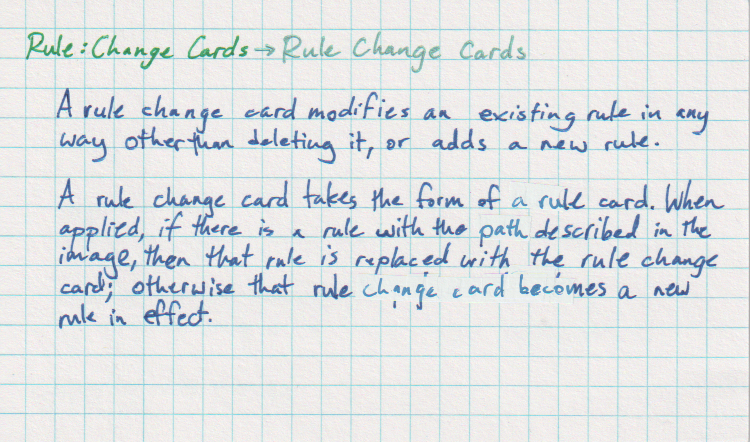 Rule: Change Cards → Rule Change Cards
A rule change card modifies an existing rule in any
way other than deleting it, or adds a new rule.
A rule change card takes the form of a rule card. When
applied, if there is a rule with the path described in the
image, then that rule is replaced with the rule change
card; otherwise that rule change card becomes a new
rule in effect.